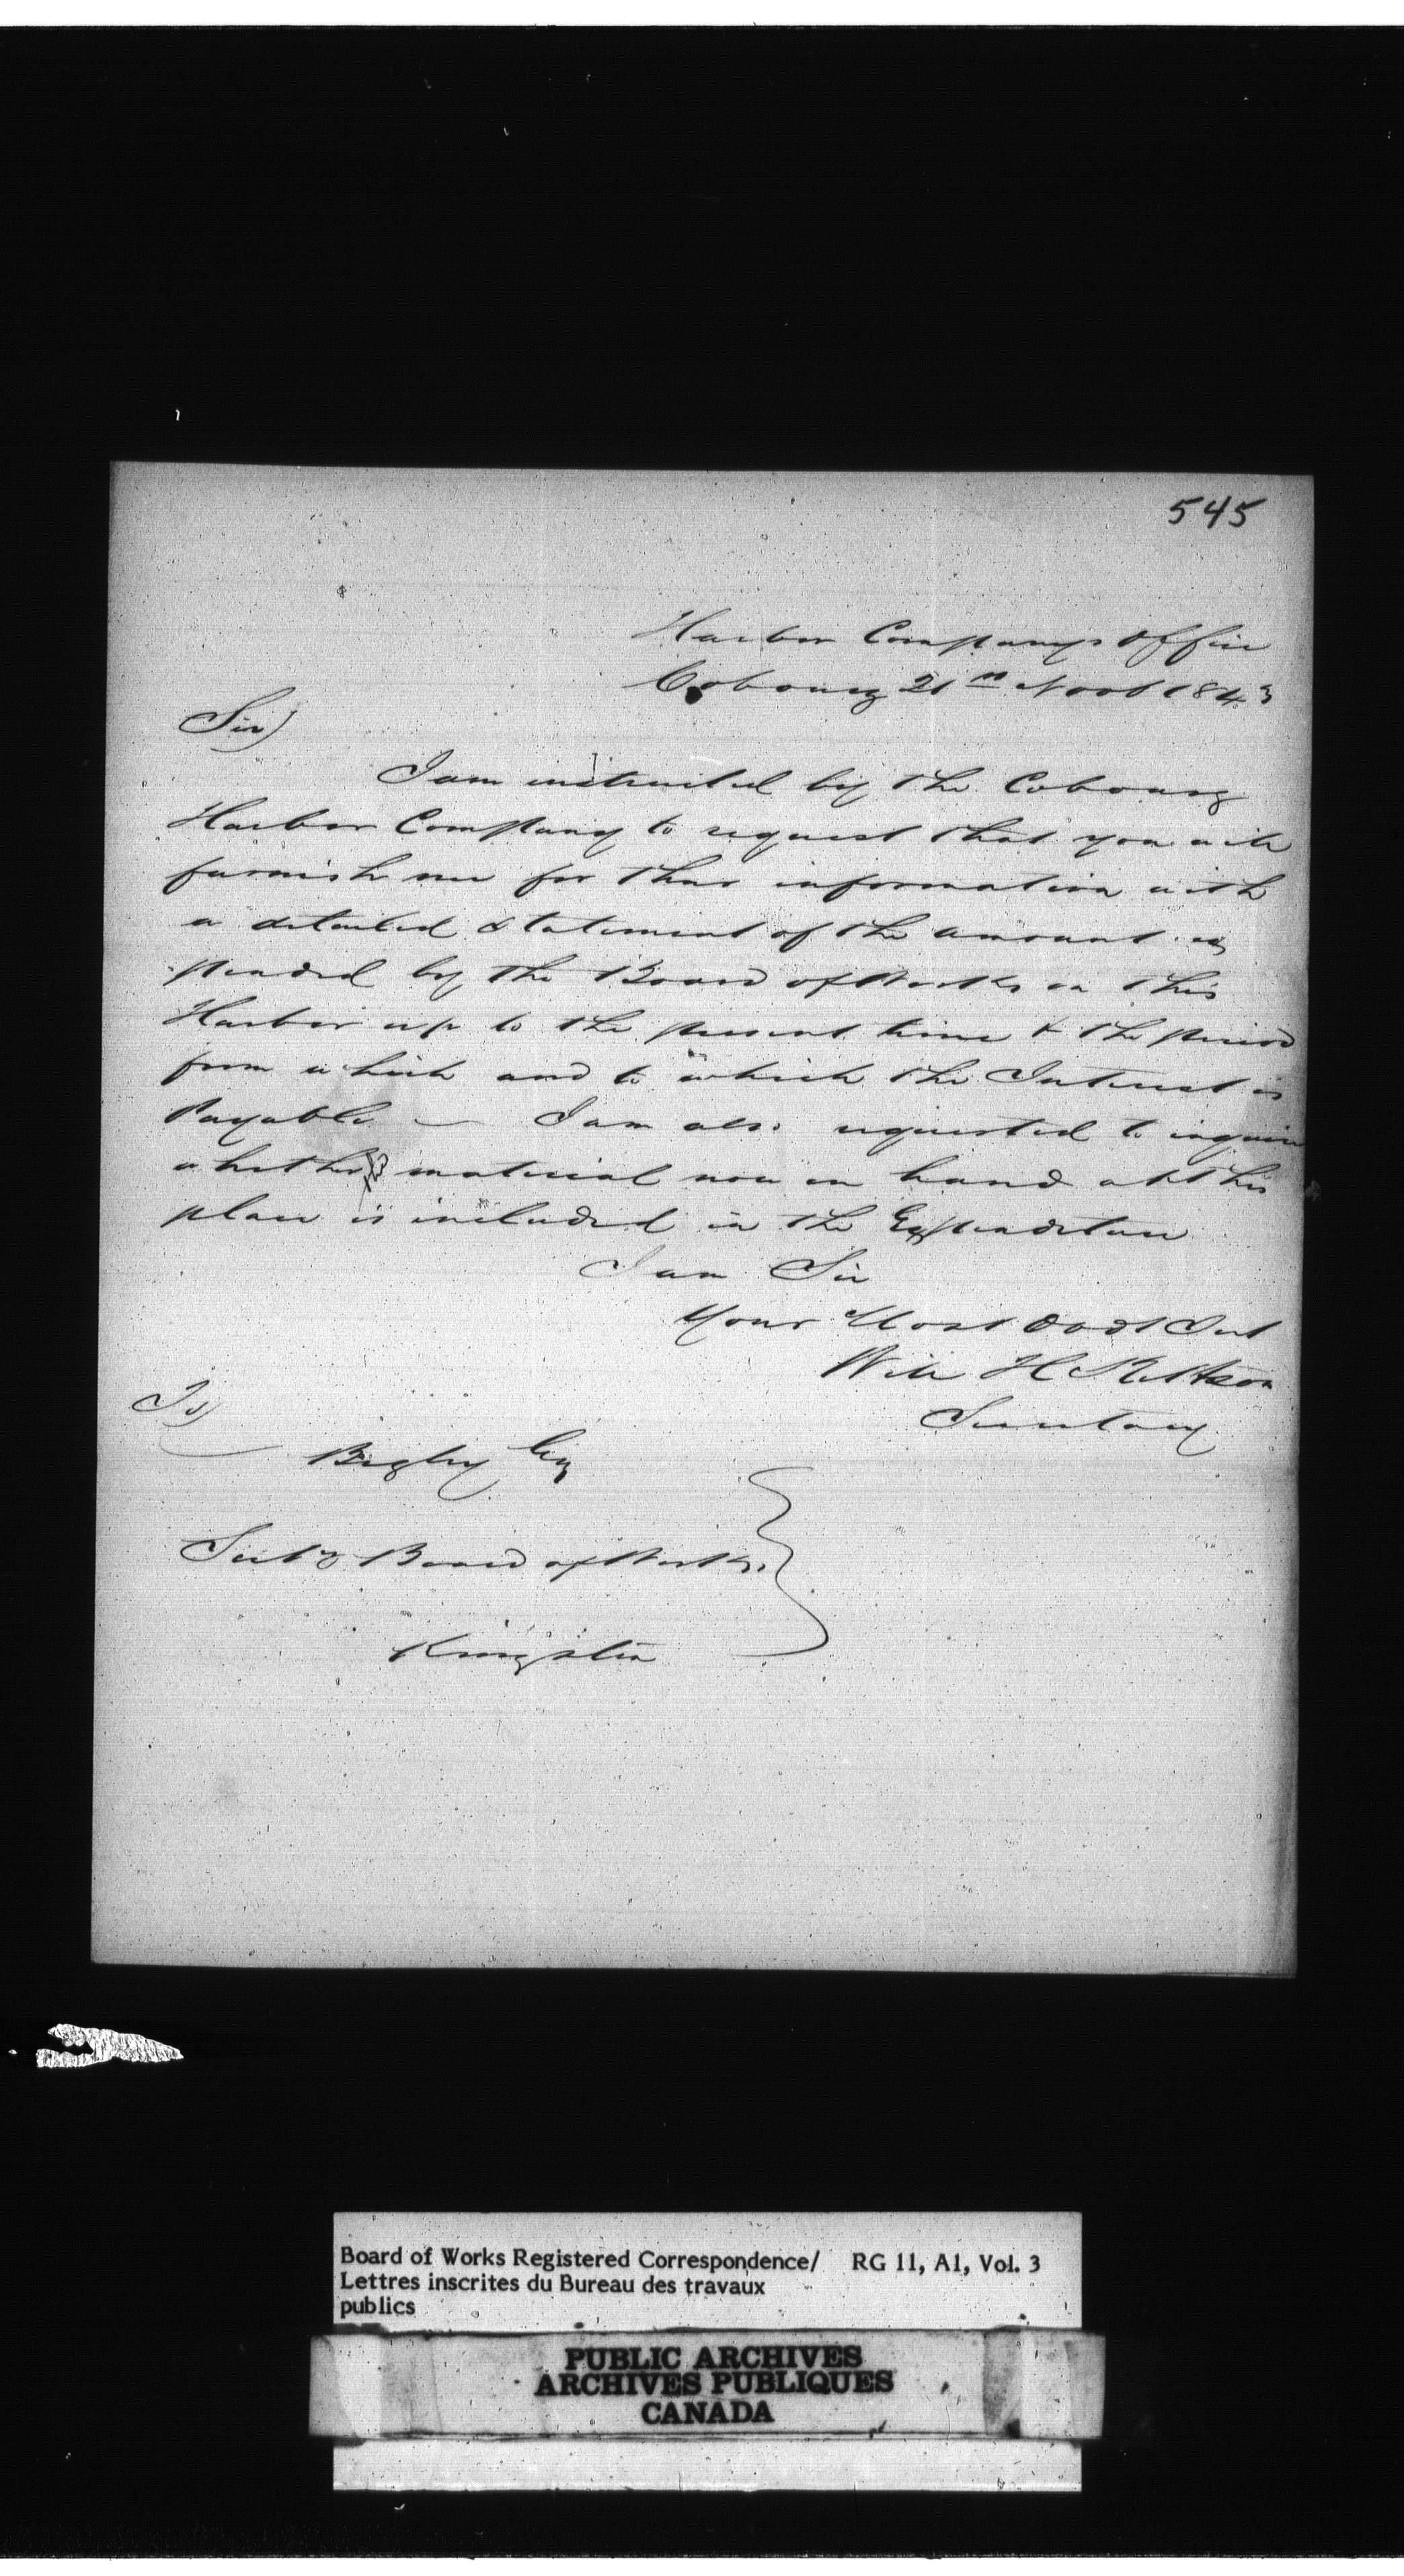 545
Harbor Companys Office
Cobourg 21st Novb 1843
Sir)
I am instructed by the Cobourg
Harbor Company to request that you will
furnish me for their information with
a detailed Statement of the amount ex
pended by the Board of Works on this
Harbor up to the present time & the period
from which and to which the Interest is
Payable — I am also requested to inquire
whether material now on hand at this
place is included in the Expenditure
I am Sir
Your Most Obdt Svt
Will H Kittson
Secretary
To)
Begly Esq
Secty Board of Works
Kingston
Board of Works Registered Correspondence/ RG 11, A1, Vol. 3
Lettres inscrites du Bureau des travaux
publics
PUBLIC ARCHIVES
ARCHIVES PUBLIQUES
CANADA